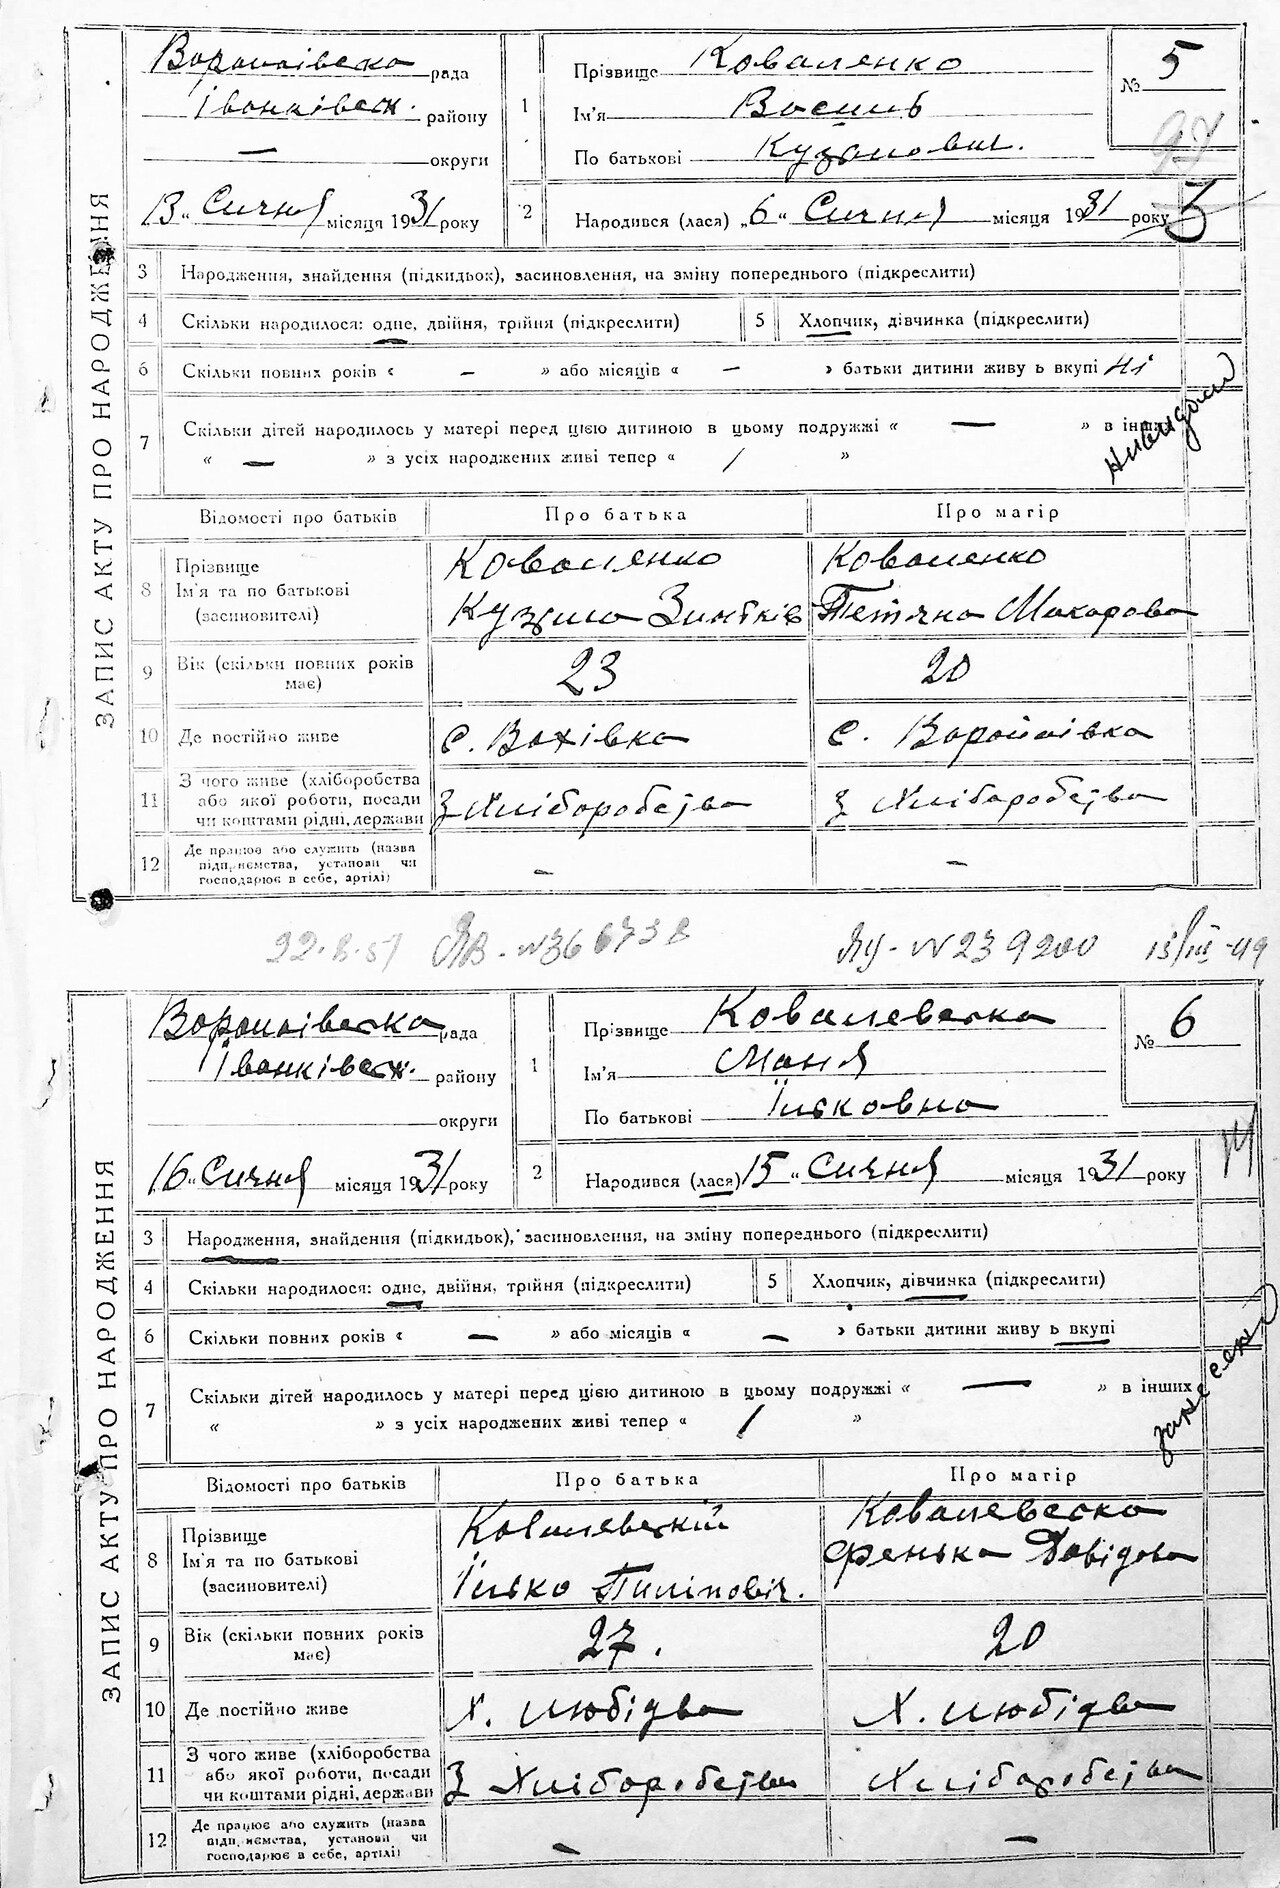 ЗАПИС АКТУ ПРО НАРОДЖЕННЯ
рада
Іванківськ. району
— округи
13 „ Сичня місяця 1931 року
1
Прізвище Коваленко
Ім'я Василь
По батькові Кузьмович.
№ 5
97
3
2 Народився (лася) „6 “ Сичня місяця 1931 року
3 Народження, знайдення (підкидьок), засиновлення, на зміну попереднього (підкреслити)
4 Скільки народилося: одне, двійня, трійня (підкреслити)
5 Хлопчик, дівчинка (підкреслити)
6 Скільки повних років « — » або місяців « — » батьки дитини живу ь вкупі Ні
7 Скільки дітей народилось у матері перед цією дитиною в цьому подружжі « — » в інших
« — » з усіх народжених живі тепер « / »
Відомості про батьків Про батька Про матір
8 Прізвище
Ім'я та по батькові
(засиновителі)
Коваленко
Кузьма
Коваленко
Тетяна Макарова
9 Вік (скільки повних років
має)
23 20
10 Де постійно живе с. Вахівка с.
11 З чого живе (хліборобства
або якої роботи, посади
чи коштами рідні, держави
З Хліборобства З Хліборобства
12 Де працює або служить (назва
підприємства, установи чи
господарює в себе, артілі)
— —
22·8·51 ЯВ-N366738 ЯУ-N239200 15/III-49
ЗАПИС АКТУ ПРО НАРОДЖЕННЯ
рада
Іванківськ. району
округи
16 „ Сичня місяця 1931 року
1
Прізвище Ковалевська
Ім'я Маня
По батькові Їльковна
№ 6
2 Народився (лася) 15 “ Сичня місяця 1931 року
3 Народження, знайдення (підкидьок), засиновлення, на зміну попереднього (підкреслити)
4 Скільки народилося: одне, двійня, трійня (підкреслити)
5 Хлопчик, дівчинка (підкреслити)
6 Скільки повних років « — » або місяців « — » батьки дитини живу ь вкупі
7 Скільки дітей народилось у матері перед цією дитиною в цьому подружжі « — » в інших
« » з усіх народжених живі тепер « / »
Відомості про батьків Про батька Про матір
8 Прізвище
Ім'я та по батькові
(засиновителі)
Ковалевскій
Їлько Пиліповіч.
Ковалевська
Фенька Давідова
9 Вік (скільки повних років
має)
27. 20
10 Де постійно живе Х. Любідва Х. Любідва
11 З чого живе (хліборобства
або якої роботи, посади
чи коштами рідні, держави
З Хліборобства Хліборобства
12 Де працює або служить (назва
підприємства, установи чи
господарює в себе, артілі)
— —